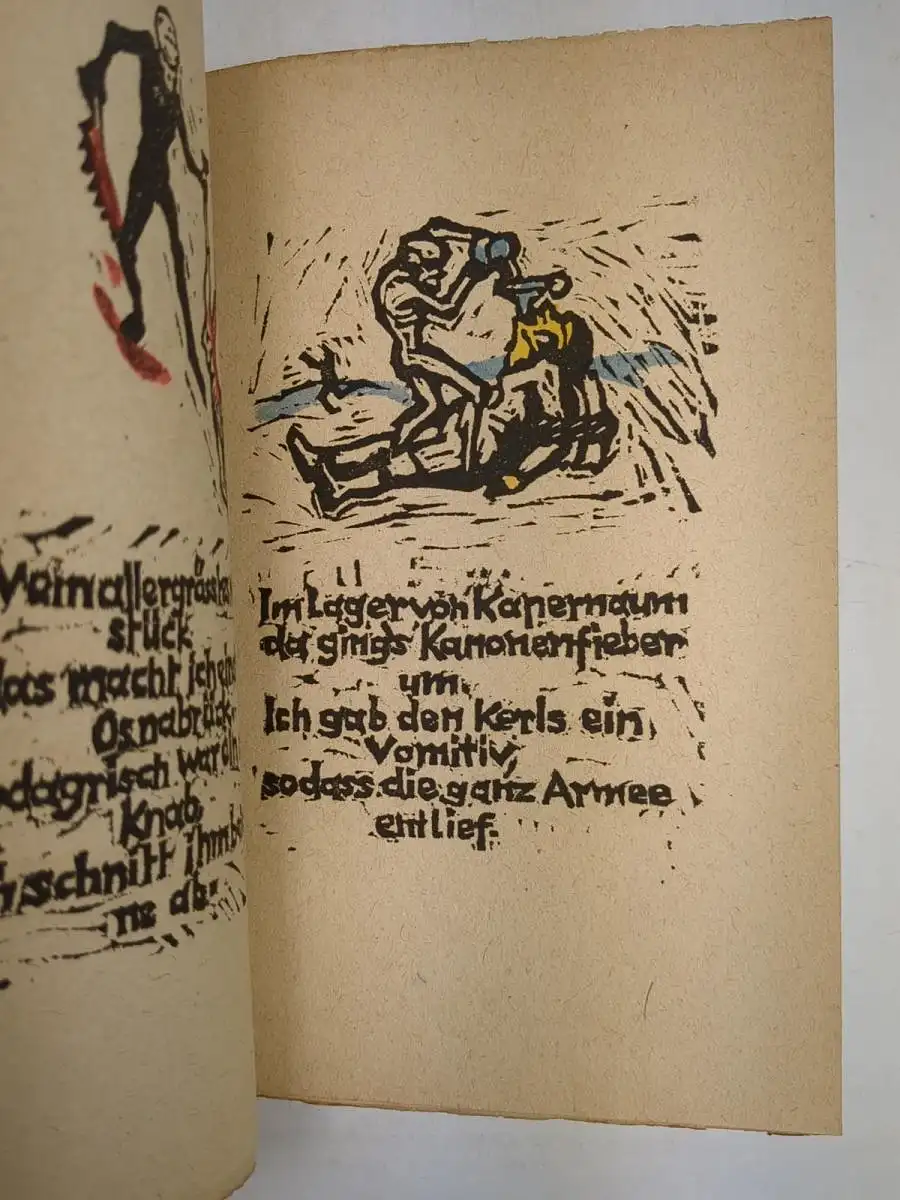 Mein allergrösstes
stück
das macht ich
Osnabrück
podagrisch war
Knab
schnitt ihm
ne ab
Im Lager von Kapernaum
da ging's Kanonenfieber
um.
Ich gab den Kerls ein
Vomitiv,
sodass die ganz Armee
entlief.